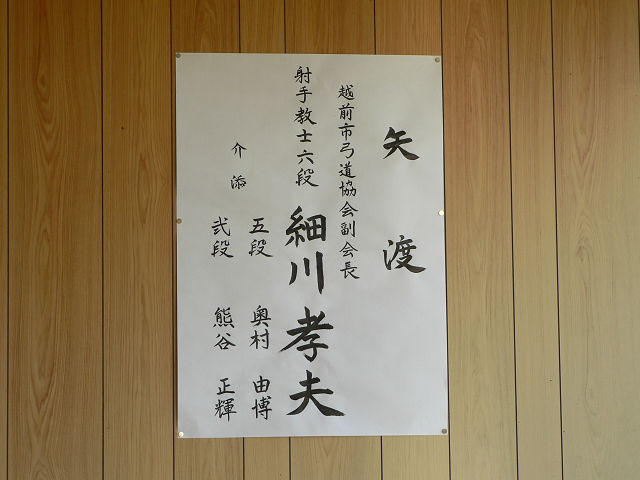 矢渡
越前市弓道協会副会長
射手教士六段 細川孝夫
介添
五段 奥村由博
弐段 熊谷正輝